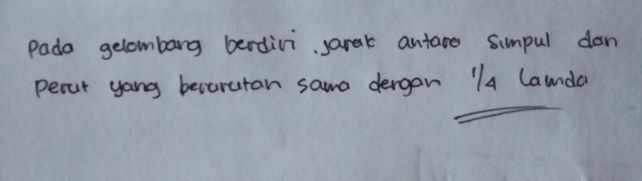 Pada gelombang berdiri, jarak antara simpul dan
perut yang berurutan sama dengan 1/4 lamda